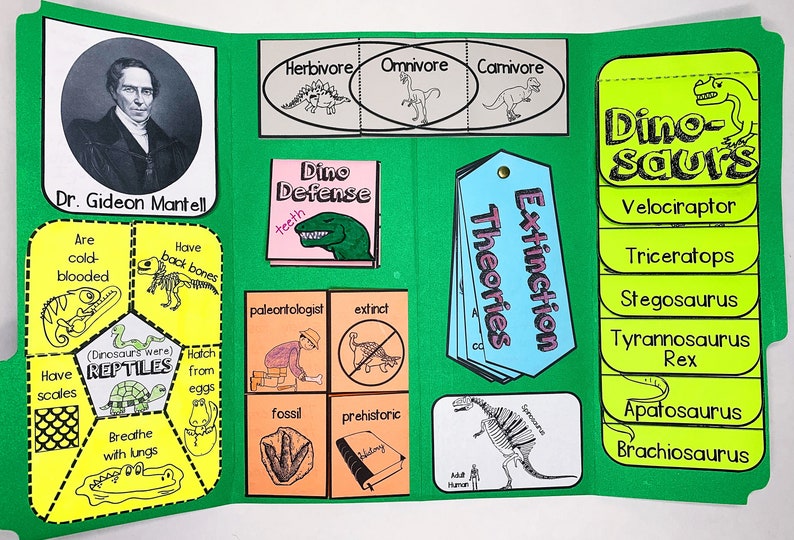 Dr. Gideon Mantell
Herbivore
Omnivore
Carnivore
Dino-
saurs
Velociraptor
Triceratops
Stegosaurus
Tyrannosaurus
Rex
Apatosaurus
Brachiosaurus
Dino
Defense
teeth
Extinction
Theories
Are
cold-
blooded
Have
back bones
(Dinosaurs were)
REPTILES
Have
scales
Hatch
from
eggs
Breathe
with lungs
paleontologist
extinct
fossil
prehistoric
History
Spinosaurus
Adult
Human